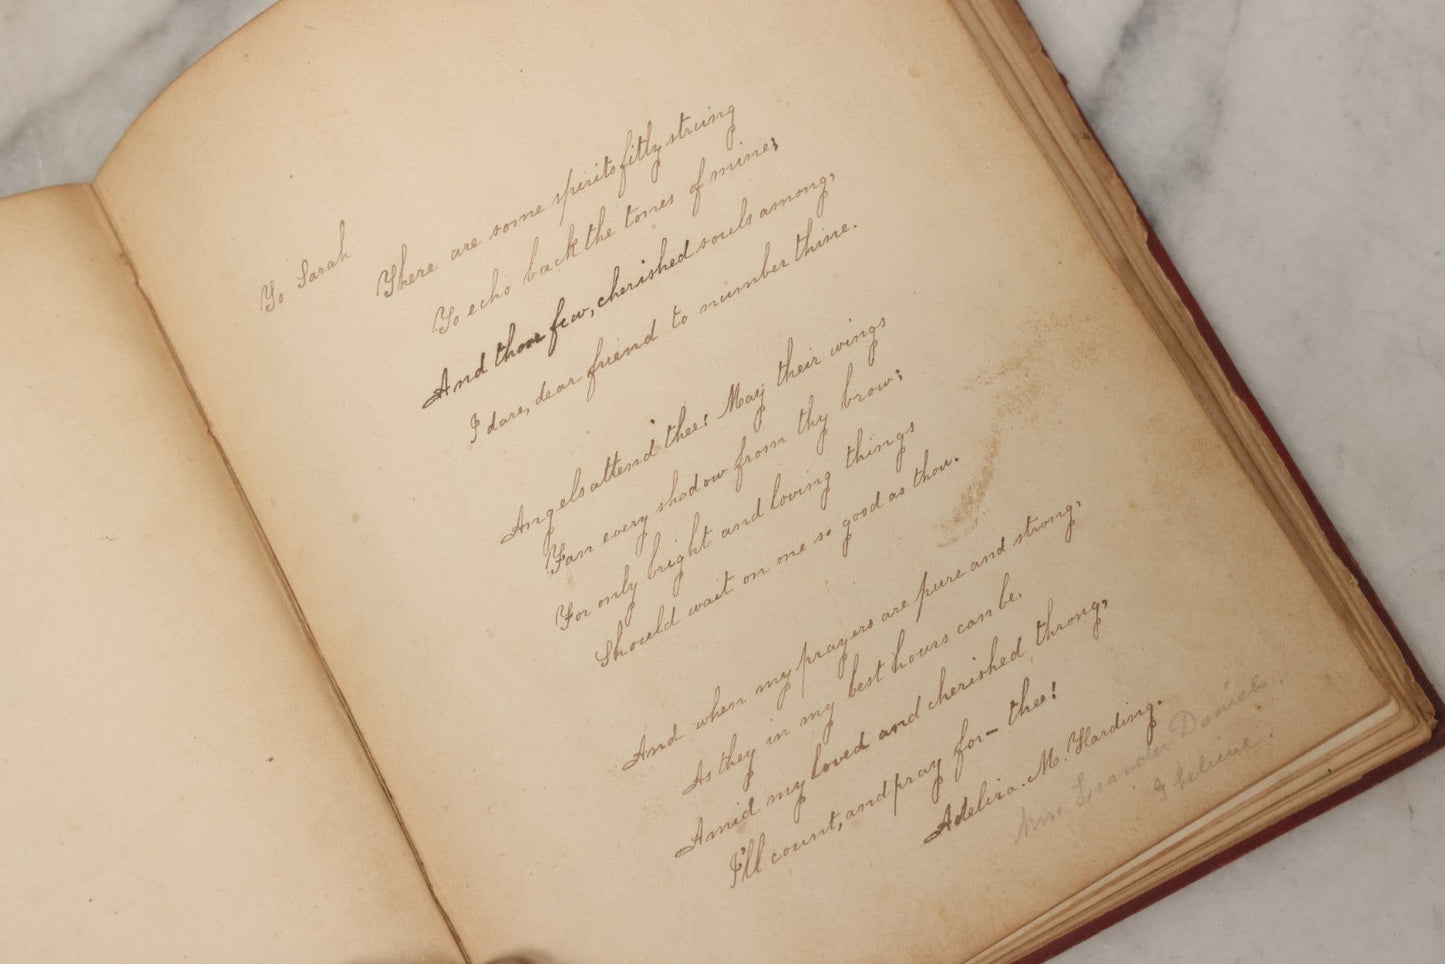 To Sarah
There are some spirits fitly strung
To echo back the tones of mine;
And those few, cherished souls among,
I dare, dear friend to number thine.
Angels attend thee! May their wings
Fan every shadow from thy brow;
For only bright and loving things
Should wait on one so good as thou.
And when my prayers are pure and strong,
As they in my best hours can be,
Amid my loved and cherished throng,
I'll count, and pray for – thee!
Adeliza. M. Harding.
Mrs. Lysander Daniels.
I believe.